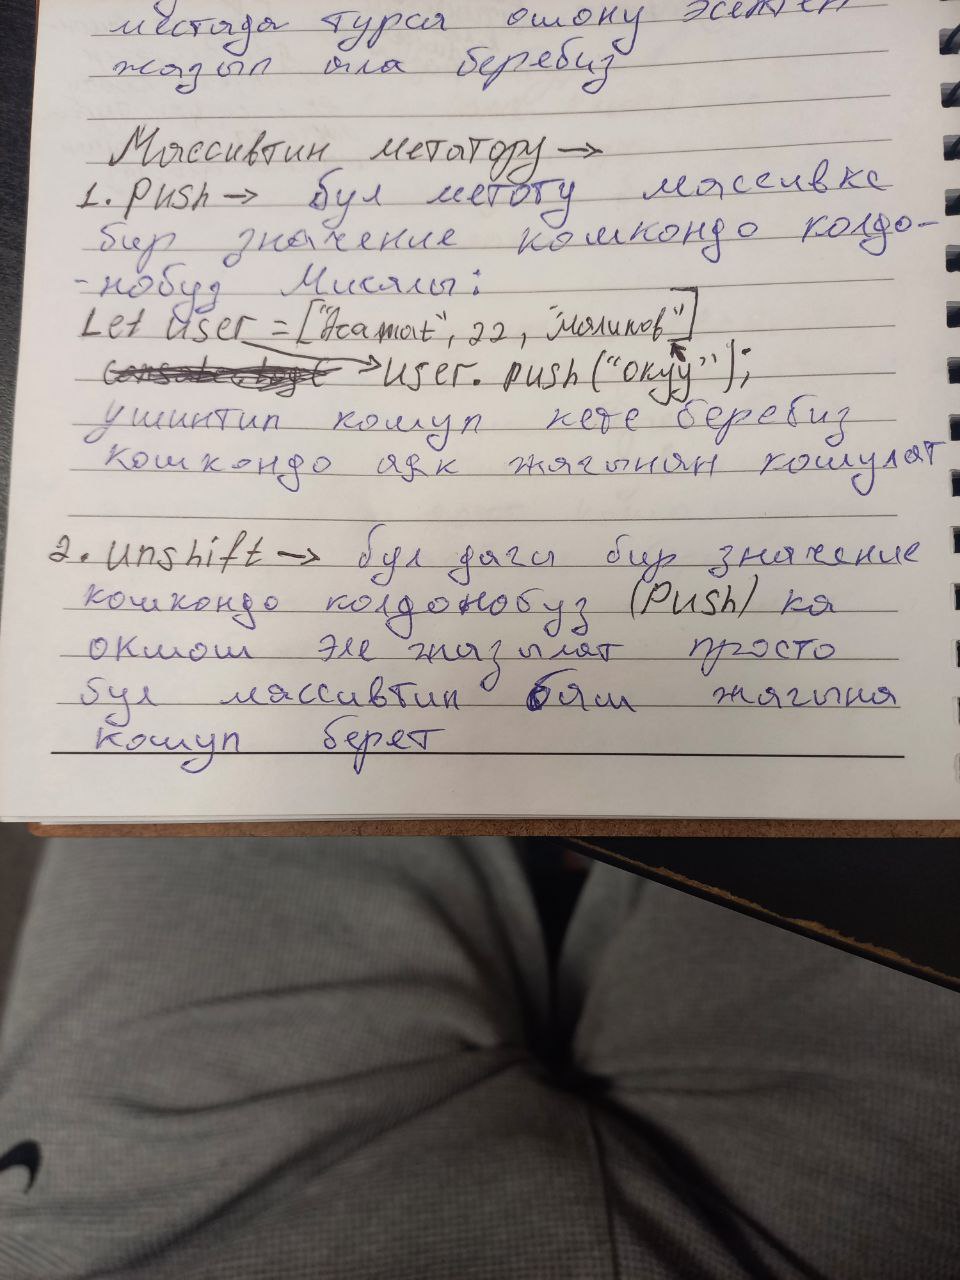 местада турса ошону эсептеп
жазып ала беребиз
Массивтин метатору →
1. Push → бул метоту массивке
бир значение кошкондо колдо-
-нобуз Мисалы:
Let user = ["Асамат", 22, "маликов"]
→ User. push ("окуу");
ушинтип кошуп кете беребиз
кошкондо аяк жагынан кошулат
2. unshift → бул дагы бир значение
кошкондо колдонобуз (Push) ка
окшош эле жазылат просто
бул массивтин баш жагына
кошуп берет